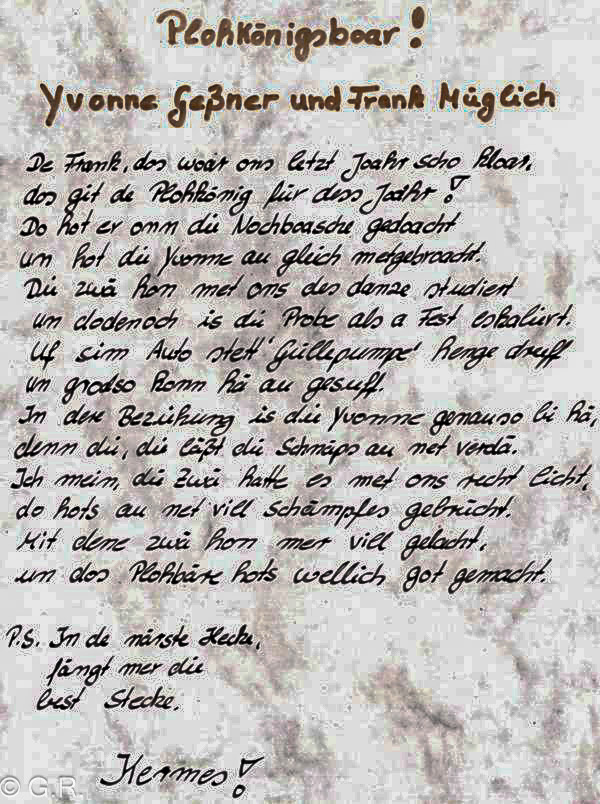 Plohkönigsboar!
Yvonne Geßner und Frank Müglich
De Frank, dos woar ons letzt Joahr scho kloar,
dos git de Plohkönig für dess Joahr!
Do hot er onn die Nochboasche gedoacht
un hot die Yvonne au gleich metgebroacht.
Die zwä hon met ons des danze studiert
un dodenoch is die Probe als a Fest eskaliert.
Uf sim Auto stett 'Güllepumpe' henge druff
un grodso konn hä au gesuff.
In dere Beziehung is die Yvonne genauso bi hä,
denn die, die läßt die Schnäps au net verdä.
Ich mein, die Zwä hatte es met ons recht licht,
do hots au net vill schämpfes gebricht.
Mit dene zwä hon mer vill gelacht,
un dos Plohbäre hots wellich got gemacht.
P.S. In de närste Hecke,
fängt mer die
best Stecke.
Hermes!
© G.R.